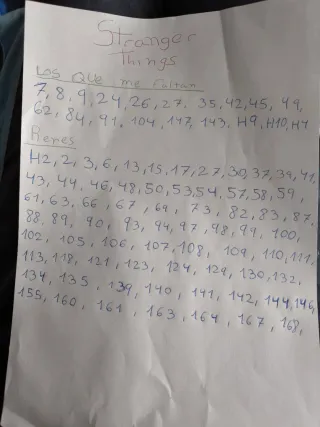 Stranger
Things
LOS QUE me faltan
7, 8, 9, 24, 26, 27, 35, 42, 45, 49,
62, 84, 91, 104, 117, 143, H9, H10, H7
Repes
H2, 2, 3, 6, 13, 15, 17, 27, 30, 37, 39, 41,
43, 44, 46, 48, 50, 53, 54, 57, 58, 59,
61, 63, 66, 67, 69, 73, 82, 83, 87,
88, 89, 90, 93, 94, 97, 98, 99, 100,
102, 105, 106, 107, 108, 109, 110, 111,
113, 118, 121, 123, 124, 129, 130, 132,
134, 135, 139, 140, 141, 142, 144, 146,
155, 160, 161, 163, 164, 167, 168,